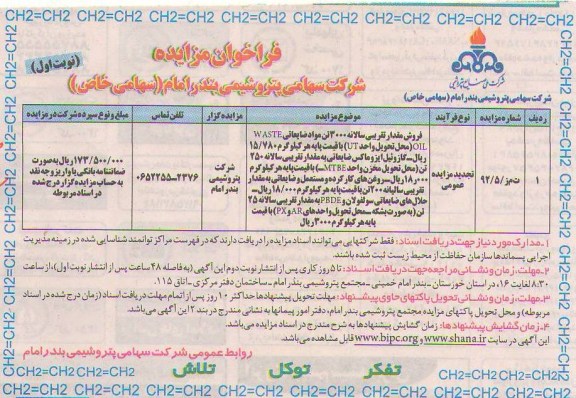 CH2=CH2 CH2=CH2 CH2=CH2 CH2=CH2 CH2=CH2 CH2=CH2 CH2=CH2 CH2=CH2 CH2=CH2
فراخوان مزایده
(نوبت اول)
شرکت سهامی پتروشیمی بندر امام (سهامی خاص)
شرکت سهامی پتروشیمی بندر امام (سهامی خاص)
ردیف شماره مزایده نوع فرآیند موضوع مزایده مزایده گزار تلفن تماس مبلغ و نوع سپرده شرکت در مزایده
۱ ت‌م‌ز/۹۲/۵ تجدید مزایده عمومی
فروش مقدار تقریبی سالانه ۳۰۰۰ تن مواد ضایعاتی WASTE
OIL (محل تحویل واحد UT) با قیمت پایه هر کیلوگرم ۱۵/۷۸۰
ریال-گازوئیل ایزوماکس ضایعاتی به مقدار تقریبی سالانه ۲۵۰
تن (محل تحویل مخزن واحد MTBE) با قیمت پایه هر کیلوگرم
۱۸/۰۰۰ ریال-سر و غن های کارکرده و مستعمل و ضایعاتی به مقدار
تقریبی سالیانه ۲۰۰ تن با قیمت پایه هر کیلوگرم ۱۸/۰۰۰ ریال-
حلال های ضایعاتی سولفولان و PBDE به مقدار تقریبی سالانه ۲۵
تن (به صورت بشکه-محل تحویل واحدهای AR و PX) با قیمت
پایه هر کیلوگرم ۳۰۰۰ ریال
شرکت
پتروشیمی
بندر امام
۰۶۵۲۲۵۵-۲۳۷۶
۱۷۳/۵۰۰/۰۰۰ ریال به صورت
ضمانتنامه بانکی یا واریز وجه نقد
به حساب مزایده گزار درج شده
در اسناد مربوطه
۱-مدارک مورد نیاز جهت دریافت اسناد: فقط شرکتهایی می توانند اسناد مزایده را دریافت دارند که در فهرست مراکز توانمند شناسایی شده در زمینه مدیریت
اجرایی پسماندها سازمان حفاظت از محیط زیست ثبت شده باشند.
۲-مهلت، زمان و نشانی مراجعه جهت دریافت اسناد: تا ۵ روز کاری پس از انتشار نوبت دوم این آگهی (به فاصله ۴۸ ساعت پس از انتشار نوبت اول)، از ساعت
۸:۳۰ لغایت ۱۶، در استان خوزستان-بندر امام خمینی-مجتمع پتروشیمی بندر امام-ساختمان دفتر مرکزی-اتاق ۱۱۵.
۳-مهلت، زمان و نشانی تحویل پاکتهای حاوی پیشنهاد: مهلت تحویل پیشنهادها حداکثر ۱۰ روز پس از اتمام مهلت دریافت اسناد (زمان درج شده در اسناد
مربوطه) و محل تحویل پاکتهای مزایده مجتمع پتروشیمی بندر امام، دفتر امور پیمانها به نشانی مندرج در بند ۲ این آگهی می باشد.
۴-زمان گشایش پیشنهادها: زمان گشایش پیشنهادها به شرح مندرج در اسناد مزایده می باشد.
این آگهی در سایت www.shana.ir و www.bipc.org قابل مشاهده می باشد.
روابط عمومی شرکت سهامی پتروشیمی بندر امام
تفکر توکل تلاش
CH2=CH2 CH2=CH2 CH2=CH2 CH2=CH2 CH2=CH2 CH2=CH2 CH2=CH2 CH2=CH2 CH2=CH2